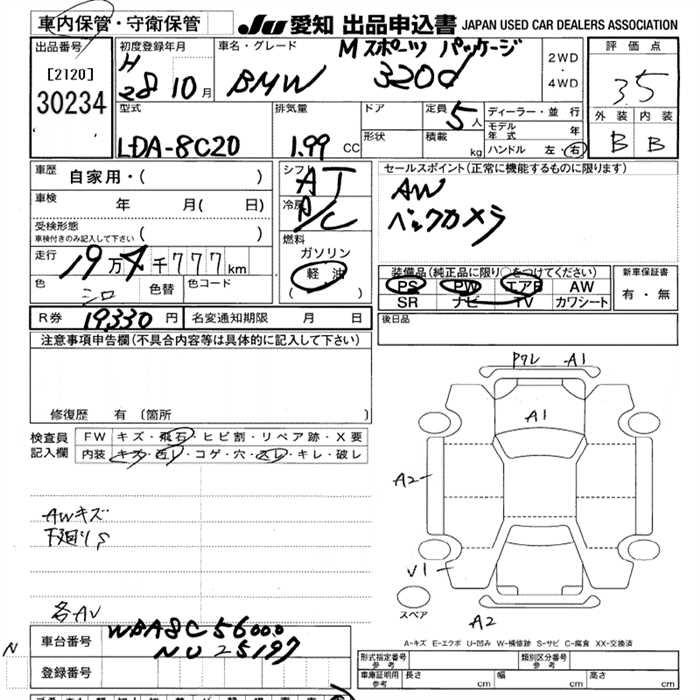 車内保管・守衛保管
JU 愛知 出品申込書 JAPAN USED CAR DEALERS ASSOCIATION
出品番号
[2120]
30234
初度登録年月
H
28 10月
車名・グレード
Mスポーツ パッケージ
BMW 320d
2WD
・
4WD
評価点
3.5
外装 内装
B B
型式
LDA-8C20
排気量
1.99 CC
ドア
形状
定員 5人
積載 kg
ディーラー・並行
モデル年式 年
ハンドル 左・右
車歴 自家用・( )
車検 年 月( 日)
受検形態
車検付きのみ記入して下さい ( )
走行 19万4千777km
色 シロ 色替 色コード
シフト AT
冷房 A/C
燃料
ガソリン
軽油
( )
セールスポイント(正常に機能するものに限ります)
AW
バックカメラ
装備品(純正品に限り○をつけてください)
PS PW エアB AW
SR ナビ TV カワシート
新車保証書
有・無
R券 19330円 名変通知期限 月 日
後日品
注意事項申告欄(不具合内容等は具体的に記入して下さい)
修復歴 有 〔箇所 〕
検査員記入欄
FW キズ・飛石・ヒビ割・リペア跡・X要
内装 キズ・凹レ・コゲ・穴・スレ・キレ・破レ
AWキズ
下廻りS
各AV
PクレA1
A1
A2
V1
A2
スペア
A-キズ E-エクボ U-凹み W-補修跡 S-サビ C-腐食 XX-交換済
N
車台番号 WBA8C56000
NU25197
登録番号
形式指定番号
参考
類別区分番号
参考
車庫証明用
参考
長さ cm 幅 cm 高さ cm